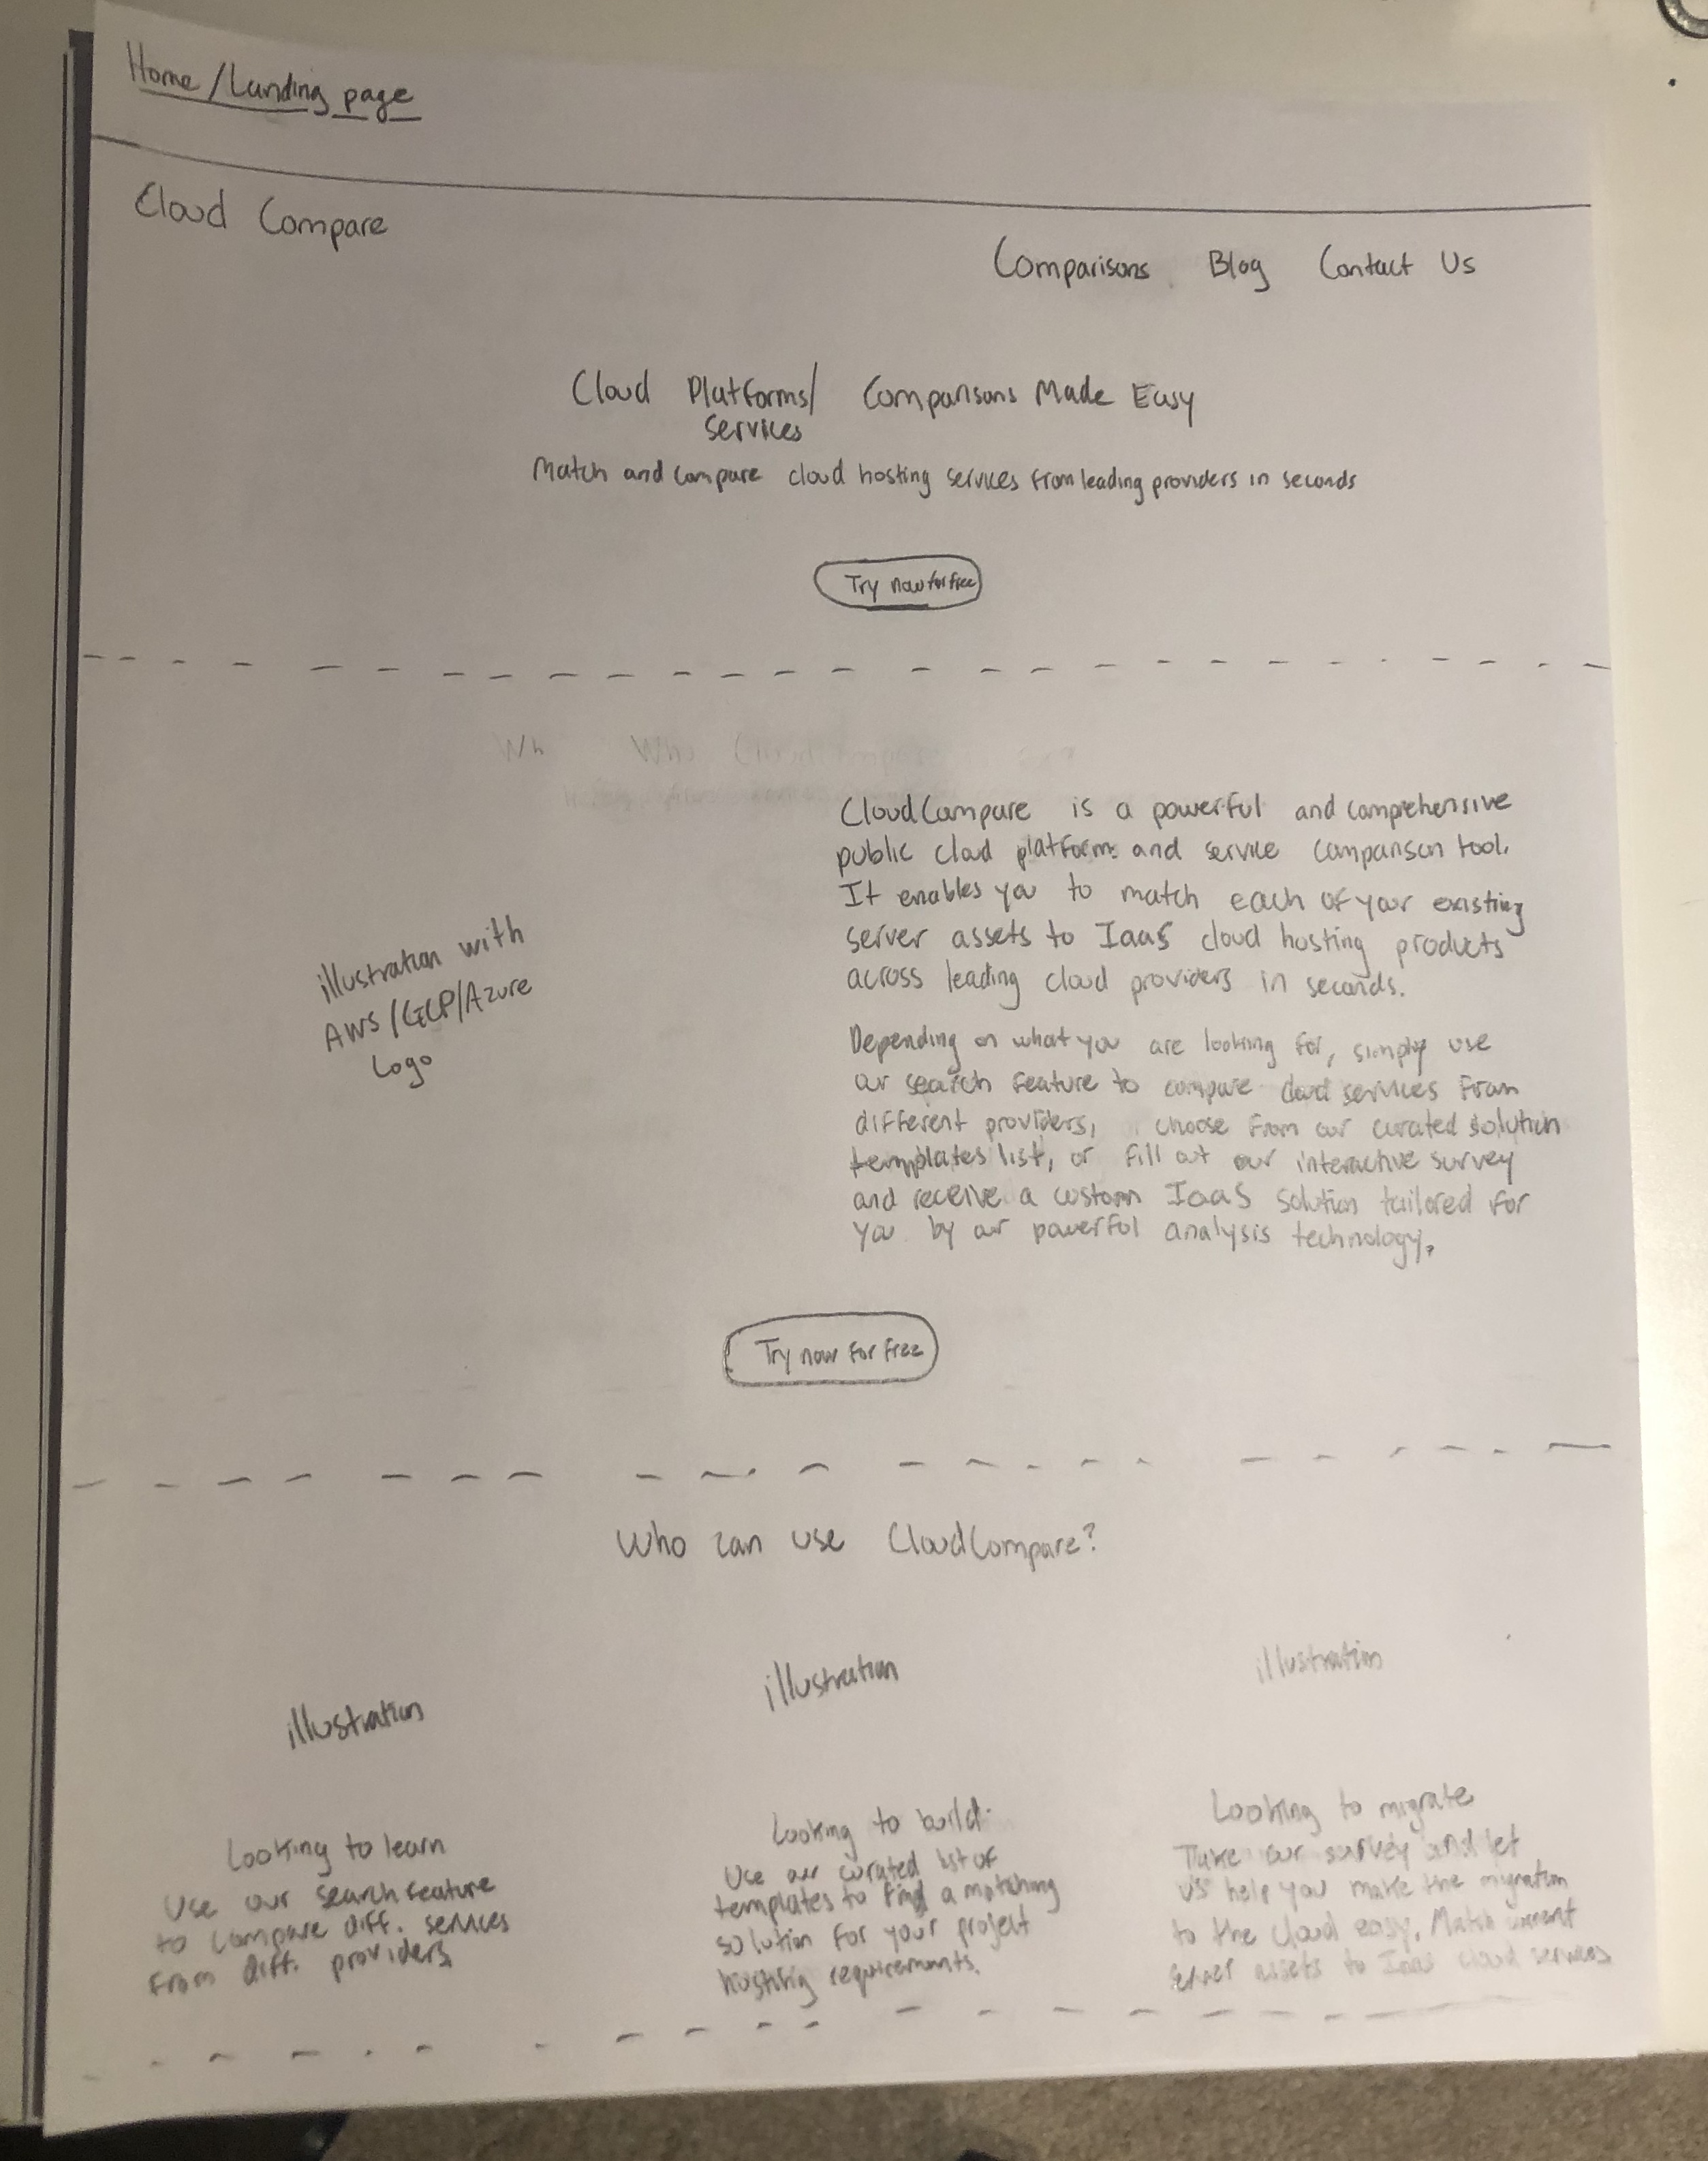 Home/Landing page
Cloud Compare
Comparisons Blog Contact Us
Cloud Platforms/ Comparisons Made Easy
Services
Match and compare cloud hosting services from leading providers in seconds
Try now for free
Wh Who Cloud
CloudCompare is a powerful and comprehensive
public cloud platform and service comparison tool.
It enables you to match each of your existing
server assets to IaaS cloud hosting products
across leading cloud providers in seconds.
illustration with
AWS/GCP/Azure
Logo
Depending on what you are looking for, simply use
our search feature to compare cloud services from
different providers, choose from our curated solution
templates list, or fill out our interactive survey
and receive a custom IaaS solution tailored for
you by our powerful analysis technology.
Try now for free
Who can use CloudCompare?
illustration
illustration
illustration
Looking to learn
Use our search feature
to compare diff. services
from diff. providers
Looking to build
Use our curated list of
templates to find a matching
solution for your project
hosting requirements.
Looking to migrate
Take our survey and let
us help you make the migration
to the cloud easy. Match current
server assets to IaaS cloud services